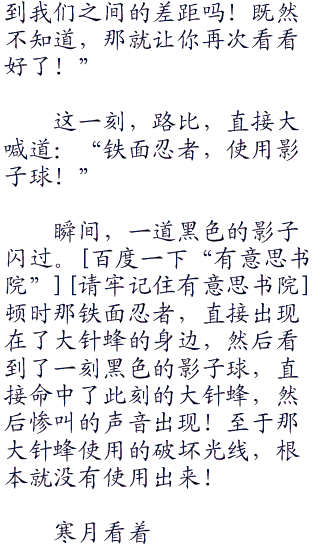 到我们之间的差距吗！既然
不知道，那就让你再次看看
好了！”
这一刻，路比，直接大
喊道：“铁面忍者，使用影
子球！”
瞬间，一道黑色的影子
闪过。[百度一下“有意思书
院”][请牢记住有意思书院]
顿时那铁面忍者，直接出现
在了大针蜂的身边，然后看
到了一刻黑色的影子球，直
接命中了此刻的大针蜂，然
后惨叫的声音出现！至于那
大针蜂使用的破坏光线，根
本就没有使用出来！
寒月看着